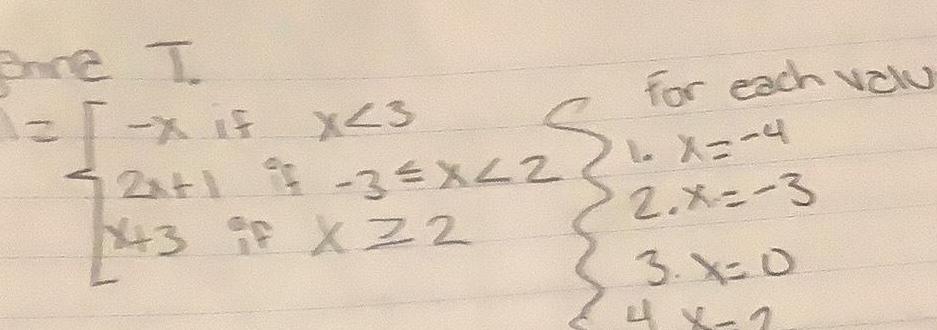 I.
= -x if x<3
2x+1 if -3≤x<2
x+3 if x≥2
For each
1. x=-4
2. x=-3
3. x=0
4 x=